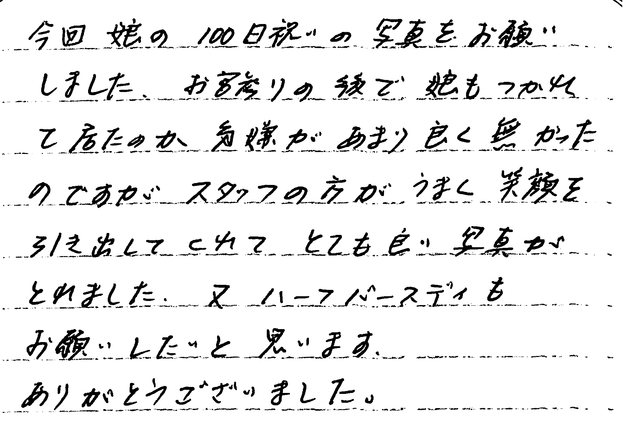 今回 娘の 100日祝いの 写真を お願い
しました、お宮参りの 後で 娘も つかれ
て 居たのか、 機嫌が あまり 良く 無かった
のですが スタッフの 方が うまく 笑顔を
引き出して くれて とても 良い 写真が
とれました、又 ハーフバースディも
お願いしたいと 思います、
ありがとうございました。